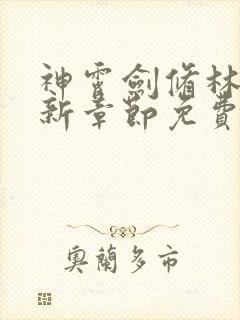 神霄劍脩林
新章節免費
奧蘭多市